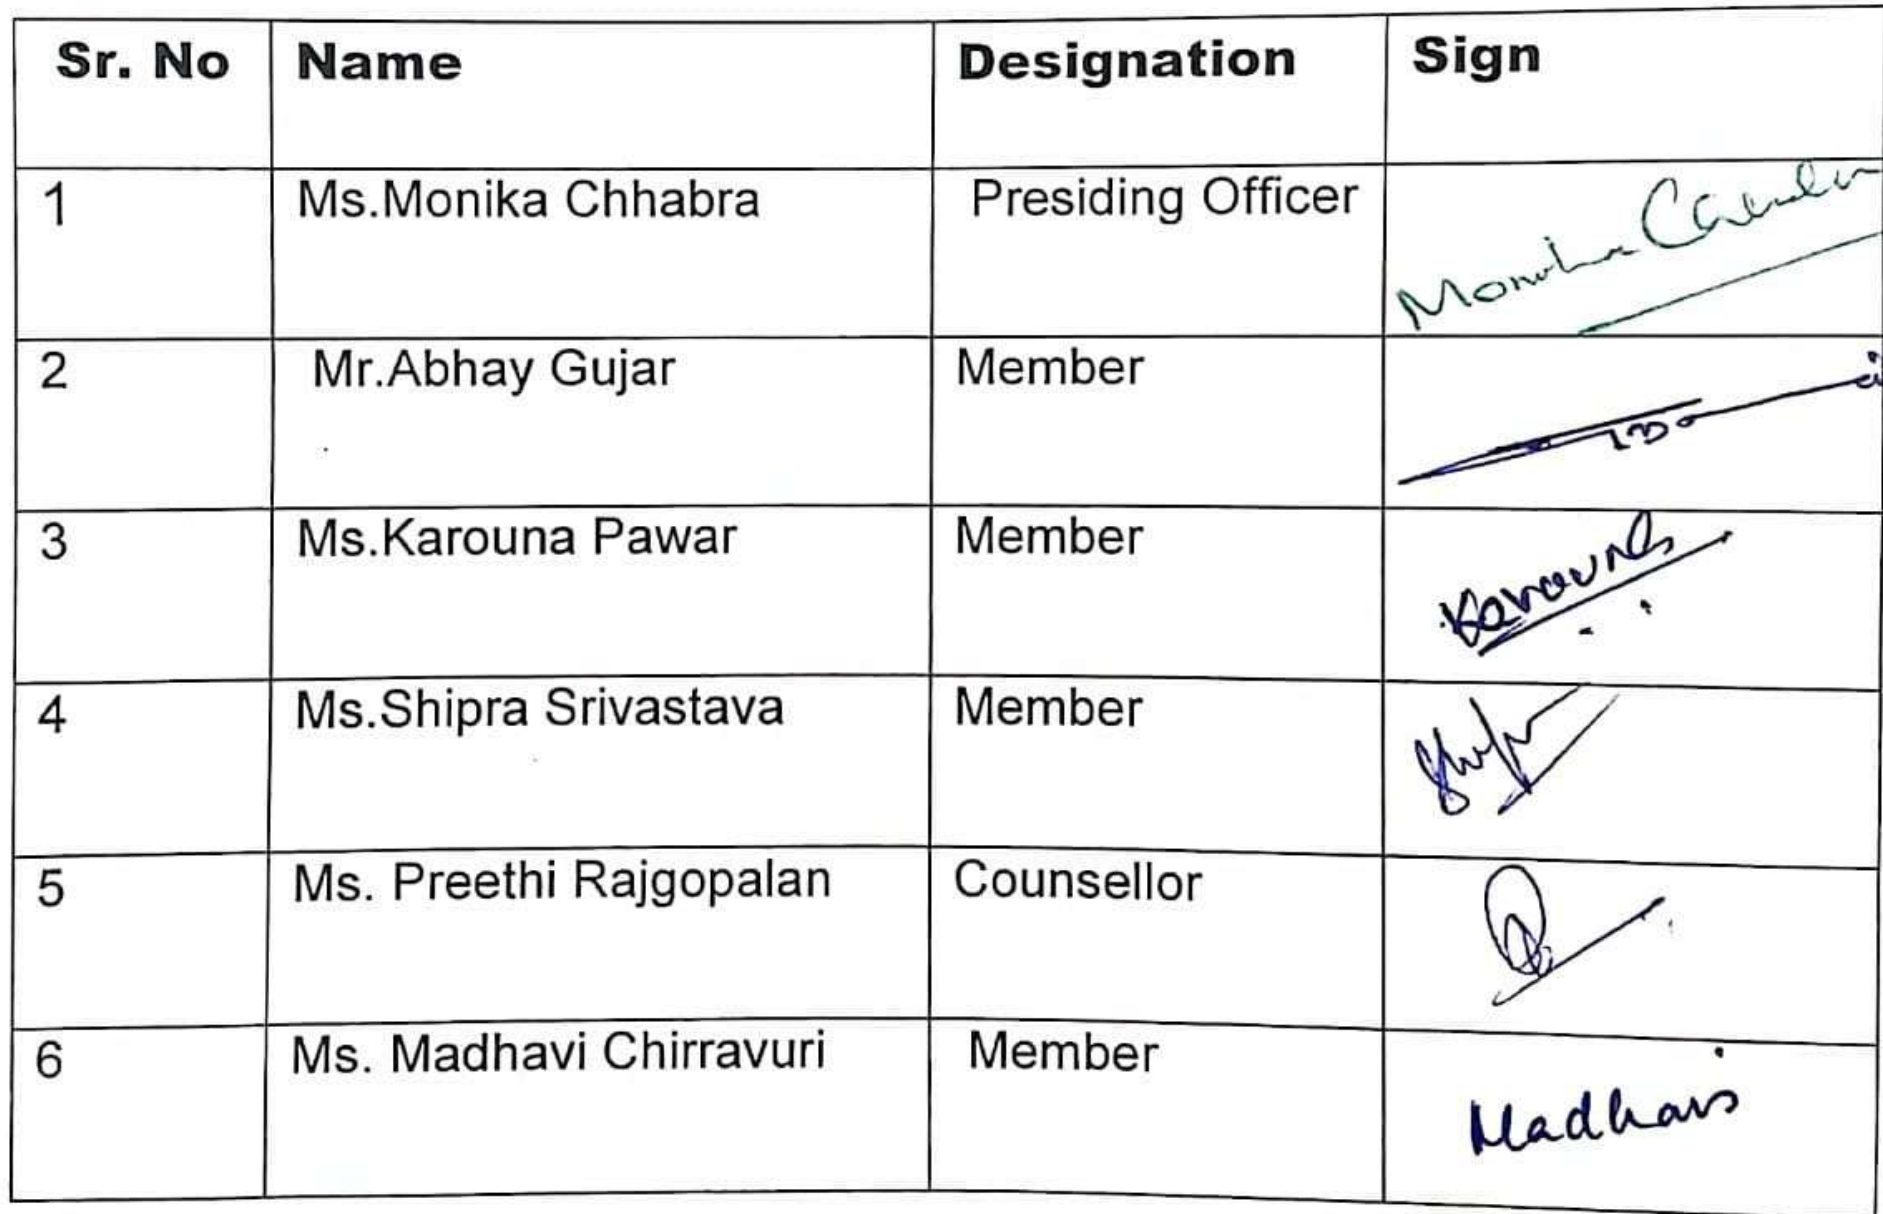 Sr. No Name Designation Sign
1 Ms.Monika Chhabra Presiding Officer Monika
2 Mr.Abhay Gujar Member
3 Ms.Karouna Pawar Member Karouna
4 Ms.Shipra Srivastava Member
5 Ms. Preethi Rajgopalan Counsellor
6 Ms. Madhavi Chirravuri Member Madhavi